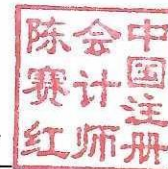 中国注册
会计师
陈赛红